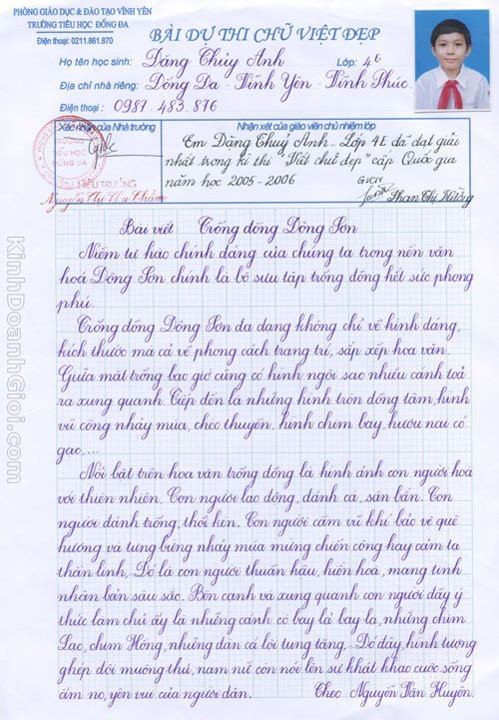 PHÒNG GIÁO DỤC & ĐÀO TẠO VĨNH YÊN
TRƯỜNG TIỂU HỌC ĐỐNG ĐA
Điện thoại: 0211.861.870
BÀI DỰ THI CHỮ VIỆT ĐẸP
Họ tên học sinh: Đặng Thuỳ Anh Lớp: 4E
Địa chỉ nhà riêng: Đống Đa - Vĩnh Yên - Vĩnh Phúc.
Điện thoại: 0987 483 876
Xác nhận của Nhà trường
Nhận xét của giáo viên chủ nhiệm lớp
Em Đặng Thuỳ Anh - Lớp 4E đã đạt giải
nhất trong kì thi "Viết chữ đẹp" cấp Quốc gia
năm học 2005-2006
HIỆU TRƯỞNG
GVCN
Phan Thị Hường
Bài viết Trống đồng Đông Sơn
Niềm tự hào chính đáng của chúng ta trong nền văn
hoá Đông Sơn chính là bộ sưu tập trống đồng hết sức phong
phú.
Trống đồng Đông Sơn đa dạng không chỉ về hình dáng,
kích thước mà cả về phong cách trang trí, sắp xếp hoa văn.
Giữa mặt trống bao giờ cũng có hình ngôi sao nhiều cánh toả
ra xung quanh. Tiếp đến là những hình tròn đồng tâm, hình
vũ công nhảy múa, chèo thuyền, hình chim bay, hươu nai có
gạc,...
Nổi bật trên hoa văn trống đồng là hình ảnh con người hoà
với thiên nhiên. Con người lao động, đánh cá, săn bắn. Con
người đánh trống, thổi kèn. Con người cầm vũ khí bảo vệ quê
hương và tưng bừng nhảy múa mừng chiến công hay cảm tạ
thần linh,.. Đó là con người thuần hậu, hiền hoà, mang tính
nhân bản sâu sắc. Bên cạnh và xung quanh con người đầy ý
thức làm chủ ấy là những cánh cò bay lả bay la, những chim
Lạc, chim Hồng, những đàn cá lội tung tăng,... Đó đây, hình tượng
ghép đôi muông thú, nam nữ còn nói lên sự khát khao cuộc sống
ấm no, yên vui của người dân. Theo Nguyễn Văn Huyên.
KinhDoanhGioi.com